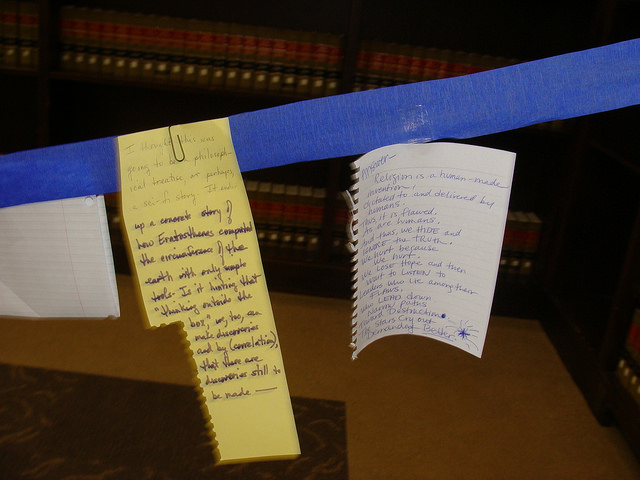 I thought this was
going to be a philosoph-
ical treatise, or perhaps
a sci-fi story. It ends
up a concrete story of
how Eratosthenes computed
the circumference of the
earth with only simple
tools. Is it hinting that
"thinking outside the
box," we, too, can
make discoveries
and by (correlation),
that there are
discoveries still to
be made —
Religion is a human-made
invention.
dictated to and delivered by
humans.
Thus it is flawed.
As are humans.
And thus, we HIDE and
IGNORE the TRUTH.
We hurt because
we hurt.
We Lose Hope and then
wait to LISTEN to
Leaders who Lie among their
FLAWS.
who LEAD down
paths
Toward Destruction.
Stars Cry out
Demanded Better